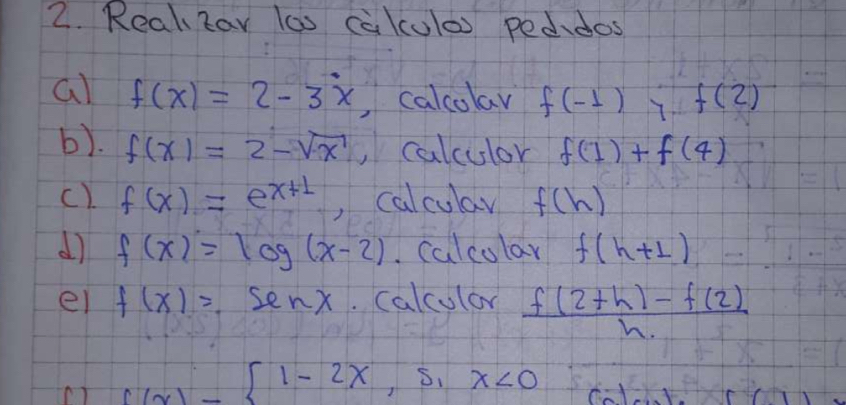 2. Realizar los cálculos pedidos
a) f(x) = 2 - 3x, calcolar f(-1) y f(2)
b). f(x) = 2 - √x, calcular f(1) + f(4)
c). f(x) = e^{x+1}, calcular f(h)
d) f(x) = log(x-2). calcolar f(h+1)
e) f(x) = sen x. calcolar \frac{f(2+h) - f(2)}{h.}
f(x) = { 1 - 2x, si x<0